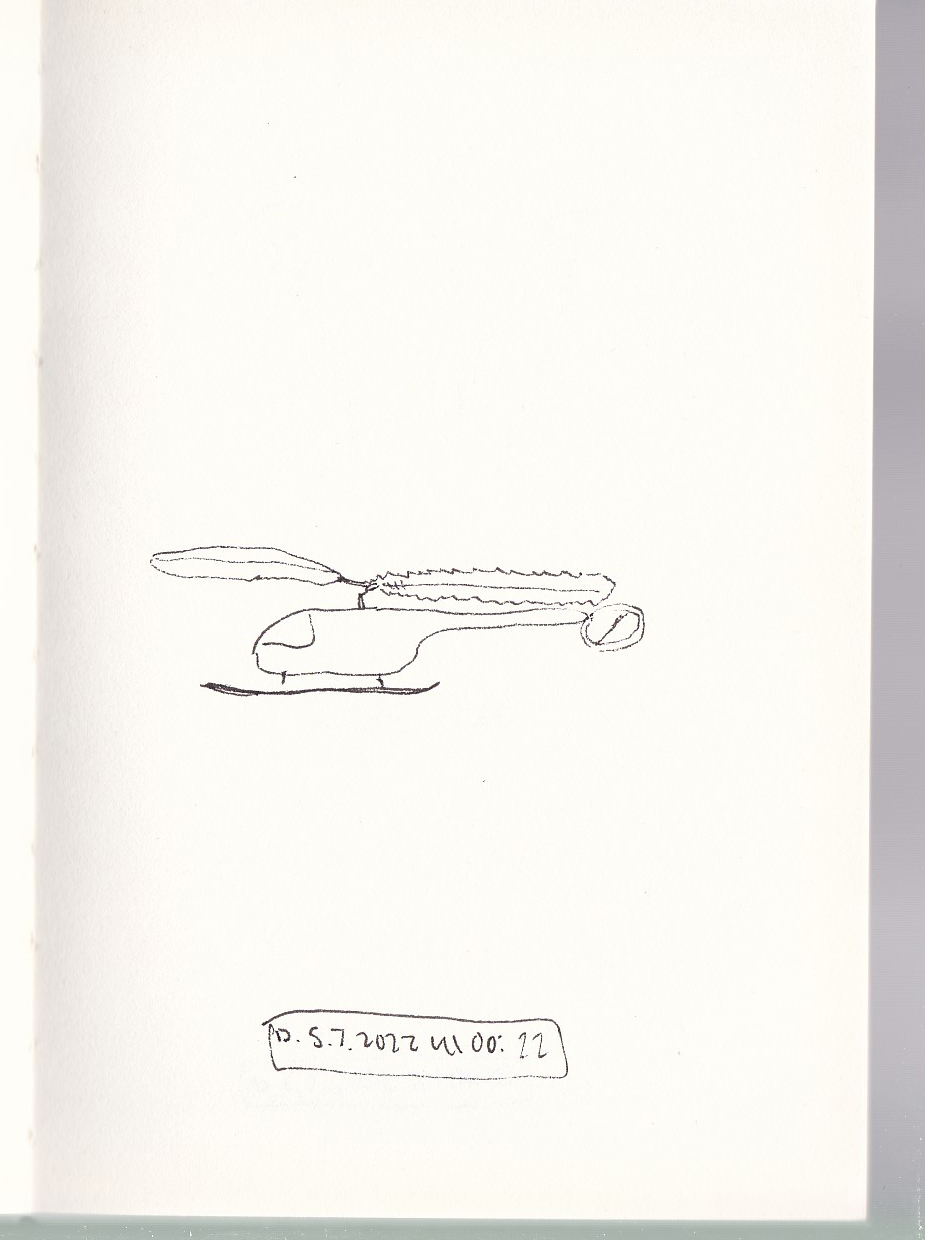 D. 5.7.2022 Ul 00:22